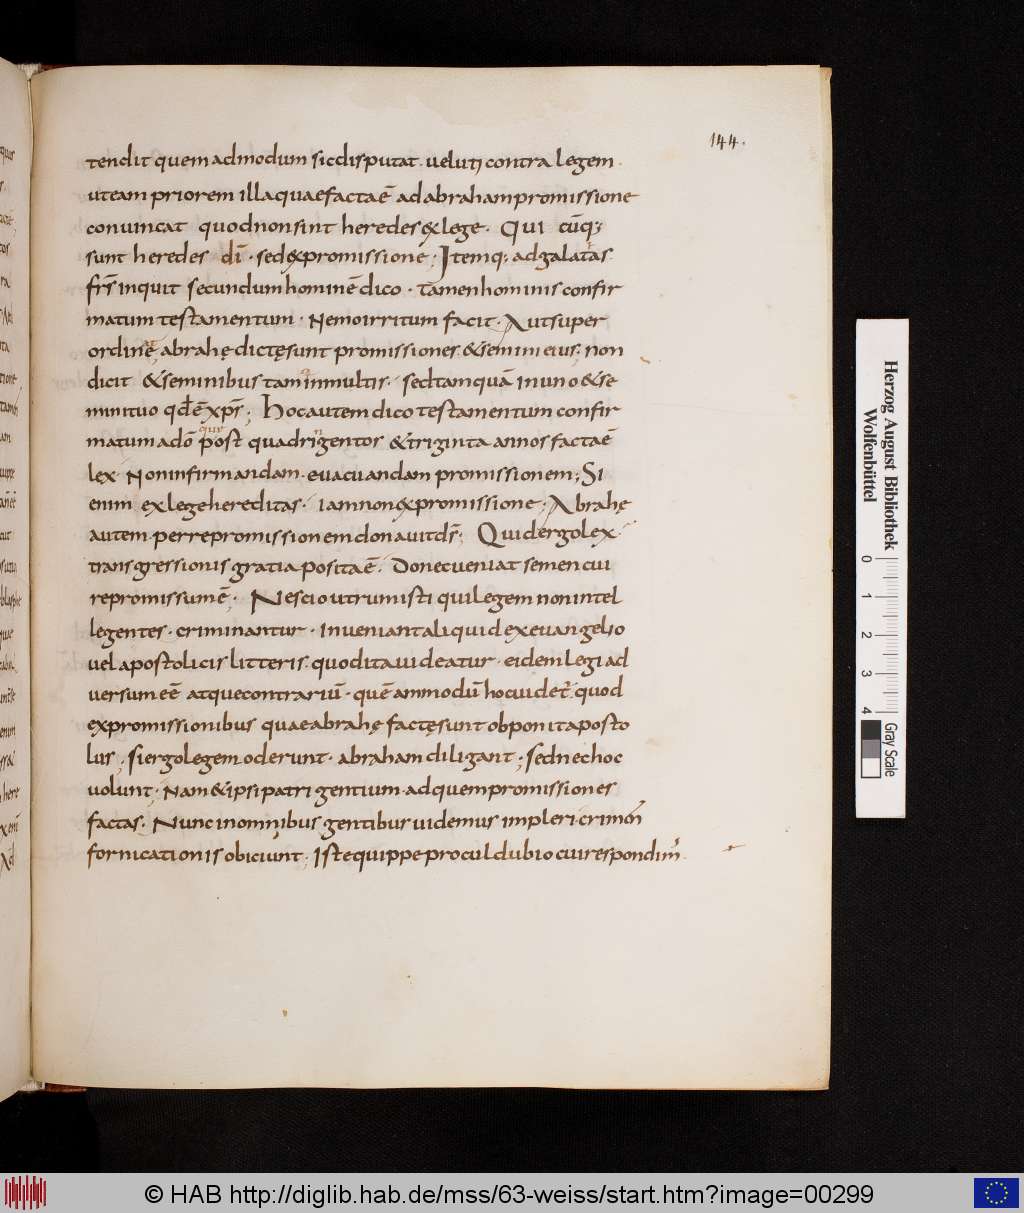 144.
tendit quem admodum sic disputat. velut contra legem.
uteam priorem illa quae facta ē ad abraham promissione
convincat quod non sint heredes & lege. Qui cūq;
sunt heredes dī. sed & promissione; Item q; ad galatas
frs̄ inquit secundum hominē dico. tamen hominis confir
matum testamentum. Nemo irritum facit. Aut super
ordinē abrahę dictę sunt promissiones. & semini eius. non
dicit & seminibus tam in multis. sed tamquā in uno & se
mini tuo qđ ē xp̄s; Hoc autem dico testamentum confir
matum a dō post quadringentos & triginta annos facta ē
lex Non infirmandam. evacuandam promissionem; Si
enim ex lege hereditas. iam non & promissione; Abrahę
autem. per repromissionem donavit d̄s; Quid ergo lex
transgressionis gratia posita ē. Donec veniat semen cui
repromissum ē. Nescio utrum isti qui legem non intel
legentes. criminantur. inveniant aliquid ex evangelio
vel apostolicis litteris. quod ita videatur. eidem legi ad
versum eē atque contrariū. quē ammodū hoc videt. quod
ex promissionibus quae abrahę factę sunt obponit aposto
lus; si ergo legem oderunt. abraham diligant; sed nec hoc
volunt; Nam & ipsi patri gentium. ad quem promissiones
factas. Nunc in omnibus gentibus videmus impleri. crimon̄
fornicationis obiciunt; Iste quippe procul dubio cui respondim̄.
Herzog August Bibliothek
Wolfenbüttel
0 1 2 3 4
Gray Scale
© HAB http://diglib.hab.de/mss/63-weiss/start.htm?image=00299